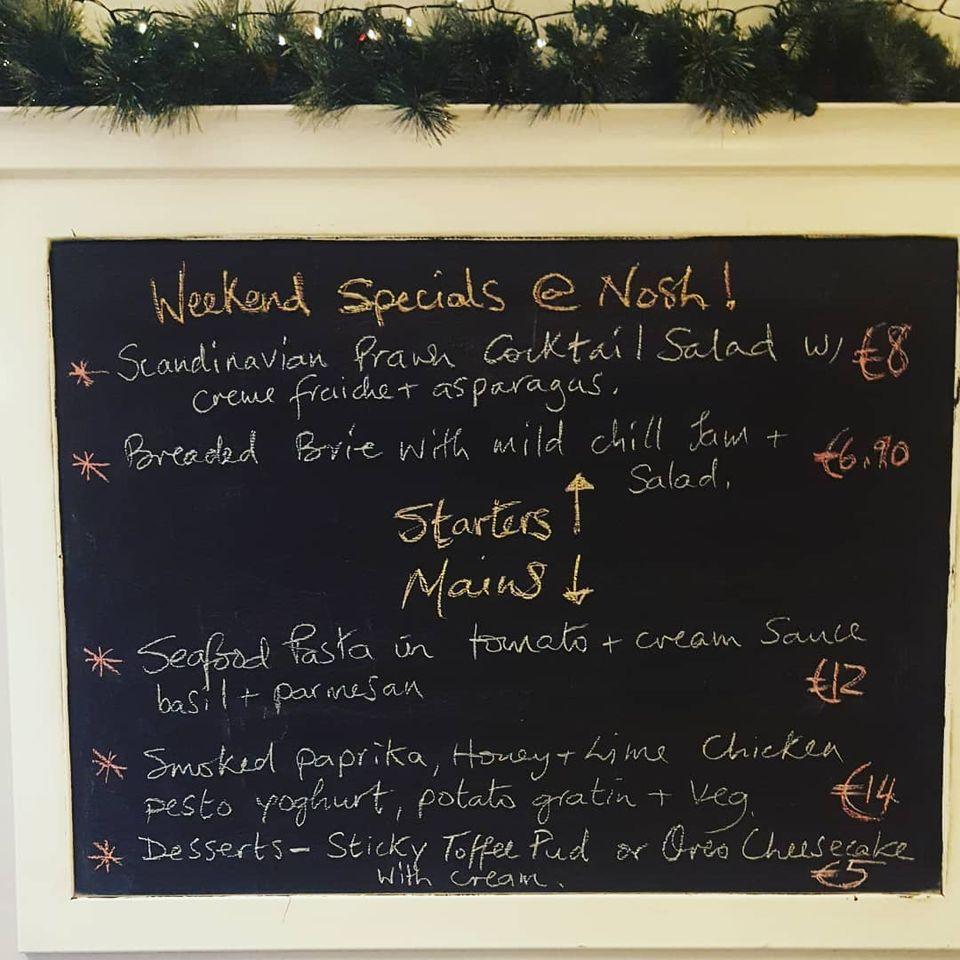 Weekend Specials @ Nosh!
* Scandinavian Prawn Cocktail Salad w/ €8
creme fraiche + asparagus.
* Breaded Brie with mild chill Jam + €6.90
Salad.
Starters ↑
Mains ↓
* Seafood Pasta in tomato + cream Sauce
basil + parmesan €12
* Smoked paprika, Honey + Lime Chicken
pesto yoghurt, potato gratin + Veg. €14
* Desserts - Sticky Toffee Pud or Oreo Cheesecake
with cream. €5